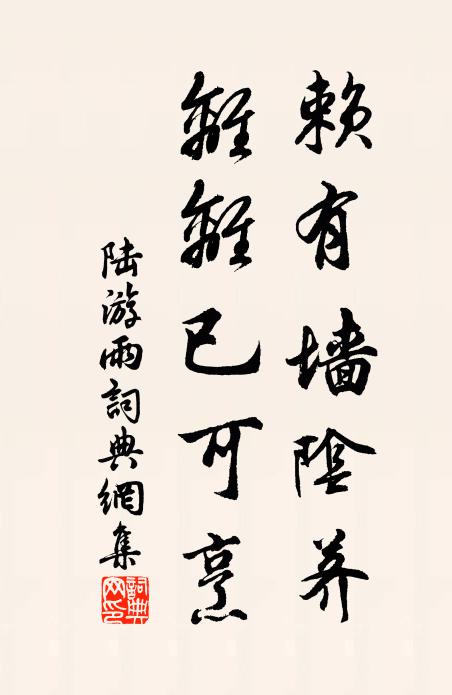 赖有墙陰荠
離離已可烹
陆游雨詞典網集
詞典
网印